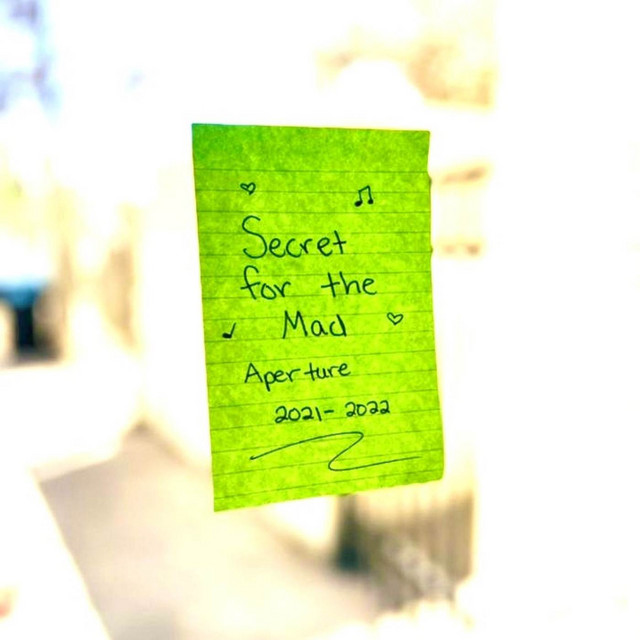 Secret
for the
Mad
Aperture
2021-2022